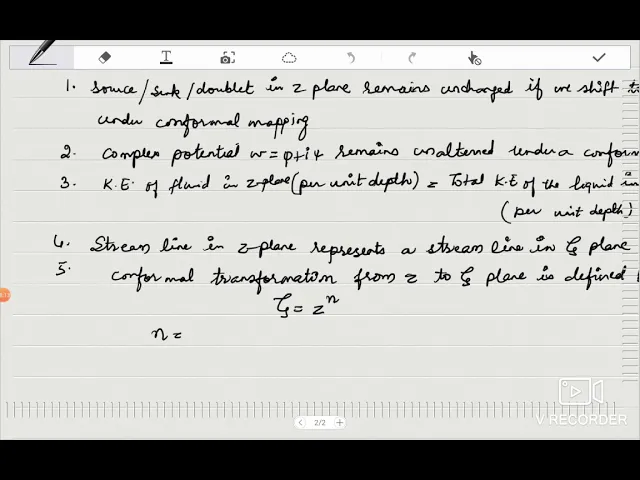 1. Source/sink/doublet in z plane remains unchanged if we shift t
under conformal mapping
2. Complex potential w = φ+iψ remains unaltered under a confor
3. K.E. of fluid in z-plane (per unit depth) = Total K.E of the liquid in
(per unit depth)
4. Stream line in z-plane represents a stream line in ζ plane
5. conformal transformation from z to ζ plane is defined
ζ = zⁿ
n =
2/2
V RECORDER